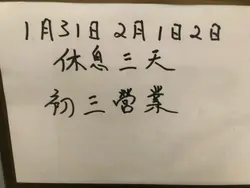 1月31日2月1日2日
休息三天
初三營業